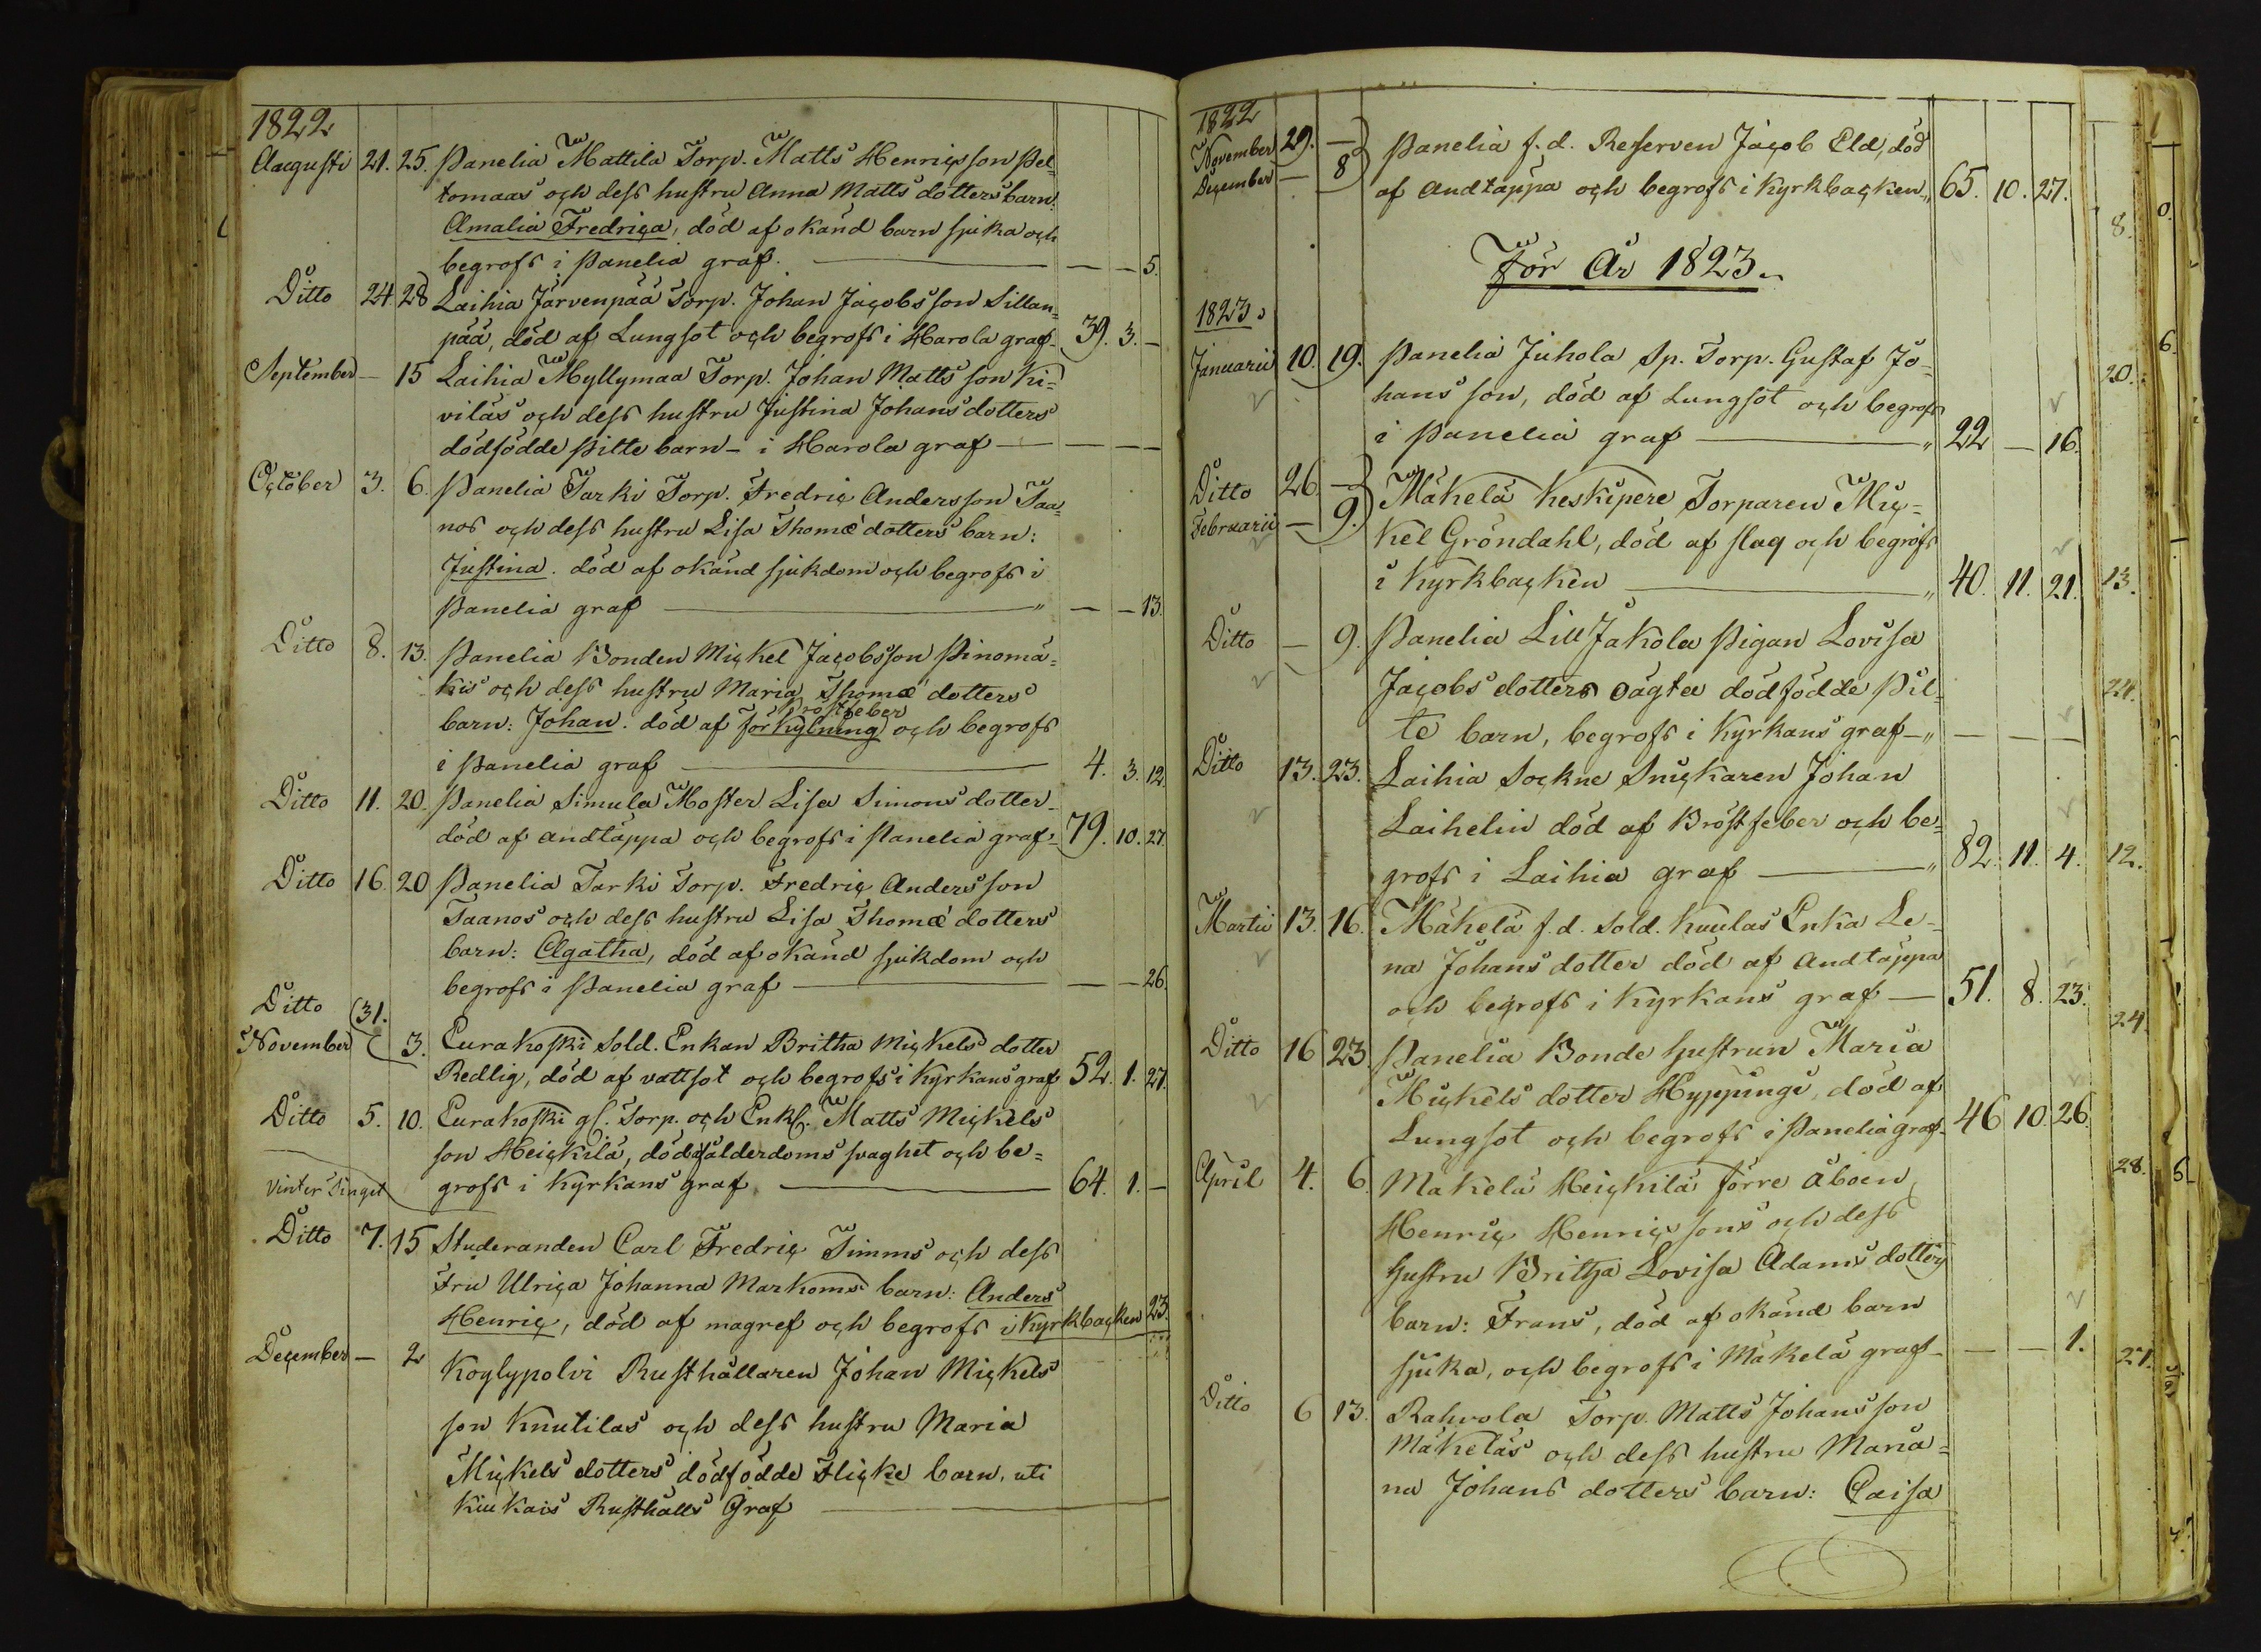 1822
Augusti 21. 25. Panelia Mattila Torp. Matts Henricsson Pel-
tomaas och dess hustru Anna Matts dotters barn:
Amalia Fredrica, död af okänd barn sjuka och
begrofs i Panelia graf. — — 5.
Ditto 24. 28 Laihia Järvenpää Torp. Johan Jacobsson Sillan-
pää, död af Lungsot och begrofs i Harola graf 39. 3. —
September — 15 Laihia Myllymaa Torp. Johan Matts son Ki-
viläs och dess hustru Justina Johans dotters
dödfödde Pilte barn - i Harola graf — — —
October 3. 6. Panelia Tarki Torp. Fredric Andersson Taa-
nos och dess hustru Lisa Thomæ dotters barn:
Justina. död af okänd sjukdom och begrofs i
Panelia graf — — 13.
Ditto 8. 13. Panelia Bonden Mickel Jacobsson Pinomä-
kis och dess hustru Maria Thomæ dotters
Bröstfeber
barn: Johan. död af förkylning och begrofs
i Panelia graf 4. 3. 12.
Ditto 11. 20. Panelia Simula Moster Lisa Simons dotter
död af andtäppa och begrofs i Panelia graf 79. 10. 27.
Ditto 16. 20 Panelia Tarki Torp. Fredric Andersson
Taanos och dess hustru Lisa Thomæ dotters
barn: Agatha, död af okänd sjukdom och
begrofs i Panelia graf — — 26.
Ditto 31.
November 3. Eurakoski Sold. Enkan Britha Mickels dotter
Redlig, död af vattsot och begrofs i Kyrkans graf 52. 1. 27.
Ditto 5. 10. Eurakoski gl. Torp. och Enkl. Matts Mickels
son Heickilä, död af ålderdoms svaghet och be-
Vinter Tinget grofs i Kyrkans graf 64. 1. —
Ditto 7. 15 Studeranden Carl Fredric Timms och dess
Fru Ulrica Johanna Markoms barn: Anders
Henric, död af magref och begrofs i Kyrkbacken 23.
December — 2 Koylypolvi Rusthållaren Johan Mickels
son Knutilas och dess hustru Maria
Mickels dotters dödfödde Flicke barn, uti
Kiukais Rusthålls Graf
1822
November 29. — Panelia f.d. Reserven Jacob Eld, död
December — 8 af andtäppa och begrofs i Kyrkbacken 65. 10. 27.
För År 1823.
1823.
Januarii 10. 19. Panelia Juhola Sp. Torp. Gustaf Jo-
hans son, död af Lungsot och begrofs
i Panelia graf 22 — 16.
Ditto 26. — Mäkelä Keskipere Torparen Mic-
Februarii — 9. kel Gröndahl, död af slag och begrofs
i Kyrkbacken 40. 11. 21.
Ditto — 9. Panelia Lill Jakola Pigan Lovisa
Jacobs dotters oägta dödfödde Pil-
te barn, begrofs i Kyrkans graf — — —
Ditto 13. 23. Laihia Sockne Snickaren Johan
Laihelin död af Bröstfeber och be-
grofs i Laihia graf 82. 11. 4.
Martii 13. 16. Mäkelä f.d. Sold. Kuulas Enka Le-
na Johans dotter död af Andtäppa
och begrofs i Kyrkans graf 51. 8. 23.
Ditto 16 23 Panelia Bonde hustrun Maria
Mickels dotter Hyppings, död af
Lungsot och begrofs i Panelia graf 46 10. 26.
April 4. 6. Mäkelä Heickilä förre åboen
Henric Henrics sons och dess
hustru Britha Lovisa Adams dotters
barn: Frans, död af okänd barn
sjuka, och begrofs i Mäkelä graf — — 1.
Ditto 6 13. Rahvola Torp. Matts Johans son
Mäkeläs och dess hustru Maria-
na Johans dotters barn: Caisa
8.
20.
13.
24.
12.
24.
28.
27.